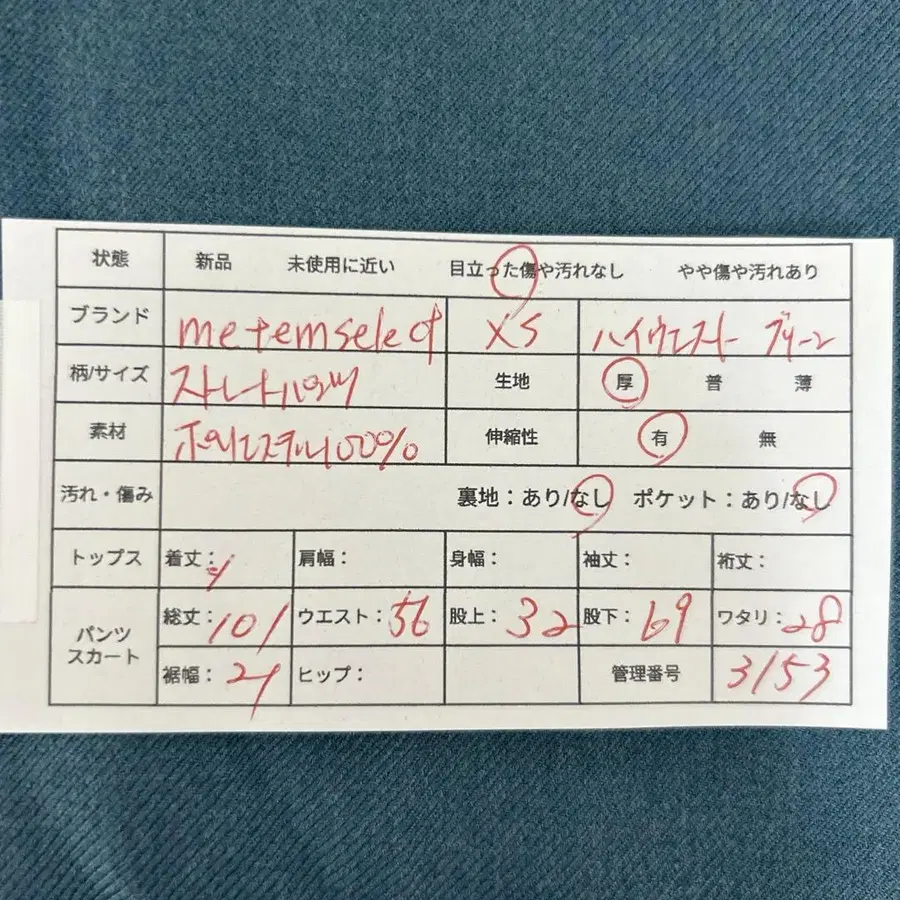 状態 新品 未使用に近い 目立った傷や汚れなし やや傷や汚れあり
ブランド metemselect XS ハイウエスト グリーン
柄/サイズ ストレートパンツ 生地 厚 普 薄
素材 ポリエステル100% 伸縮性 有 無
汚れ・傷み 裏地：あり/なし ポケット：あり/なし
トップス 着丈： 肩幅： 身幅： 袖丈： 裄丈：
パンツ スカート 総丈：101 ウエスト：56 股上：32 股下：69 ワタリ：28
裾幅：21 ヒップ： 管理番号 3153